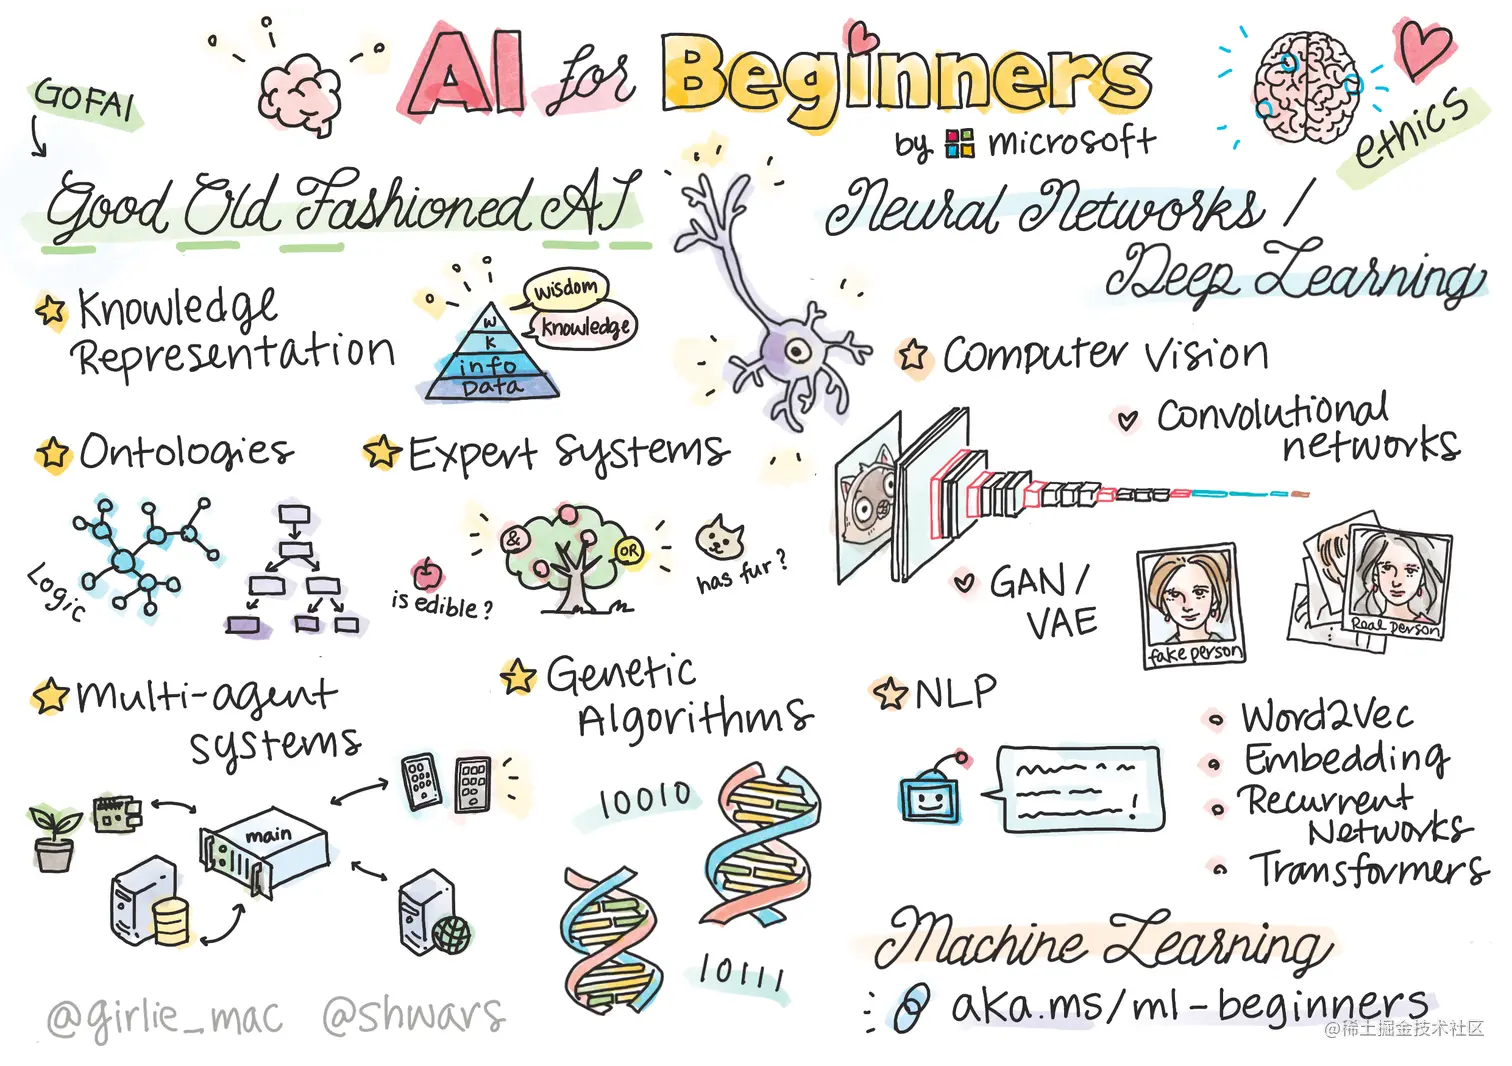 AI for Beginners
by microsoft
GOFAI
Good Old Fashioned AI
Knowledge
Representation
wisdom
knowledge
W
K
info
Data
Ontologies
Logic
Expert Systems
&
OR
is edible?
has fur?
Multi-agent
systems
main
Genetic
Algorithms
10010
10111
@girlie_mac @shwars
ethics
Neural Networks /
Deep Learning
Computer Vision
Convolutional
networks
GAN /
VAE
fake person
Real person
NLP
!
Word2Vec
Embedding
Recurrent
Networks
Transformers
Machine Learning
aka.ms/ml-beginners
@稀土掘金技术社区